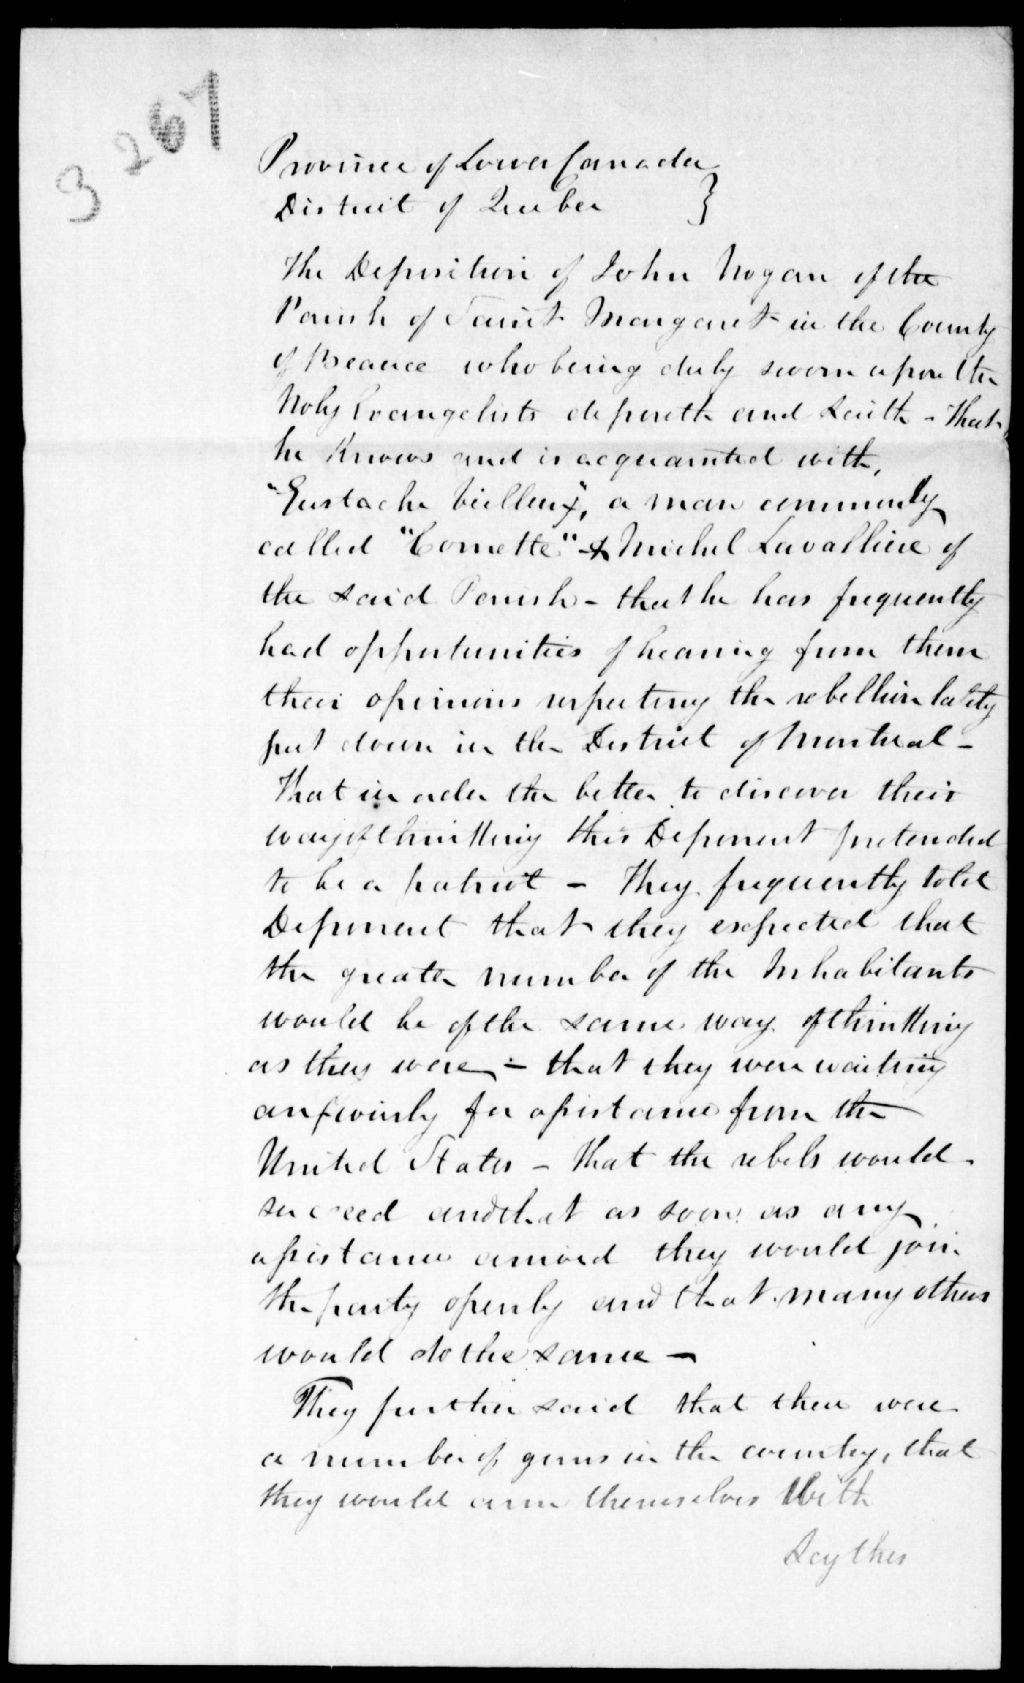 3267
Province of Lower Canada }
District of Quebec
The Deposition of John Hogan of the
Parish of Saint Margaret in the County
of Beauce who being duly sworn upon the
Holy Evangelists deposeth and saith - That
he knows and is acquainted with,
"Eustache Villeux", a man commonly
called "Cornette" & Michel Lavallière of
the said Parish - that he has frequently
had opportunities of hearing from them
their opinions respecting the rebellion lately
put down in the District of Montreal -
That in order the better to discover their
way of thinking this Deponent pretended
to be a patriot - They frequently told
Deponent that they expected that
the greater number of the Inhabitants
would be of the same way of thinking
as they were - that they were waiting
anxiously for assistance from the
United States - that the rebels would
succeed and that as soon as any
assistance arrived they would join
the party openly and that many others
would do the same -
They further said that there were
a number of guns in the country, that
they would arm themselves With
Scythes